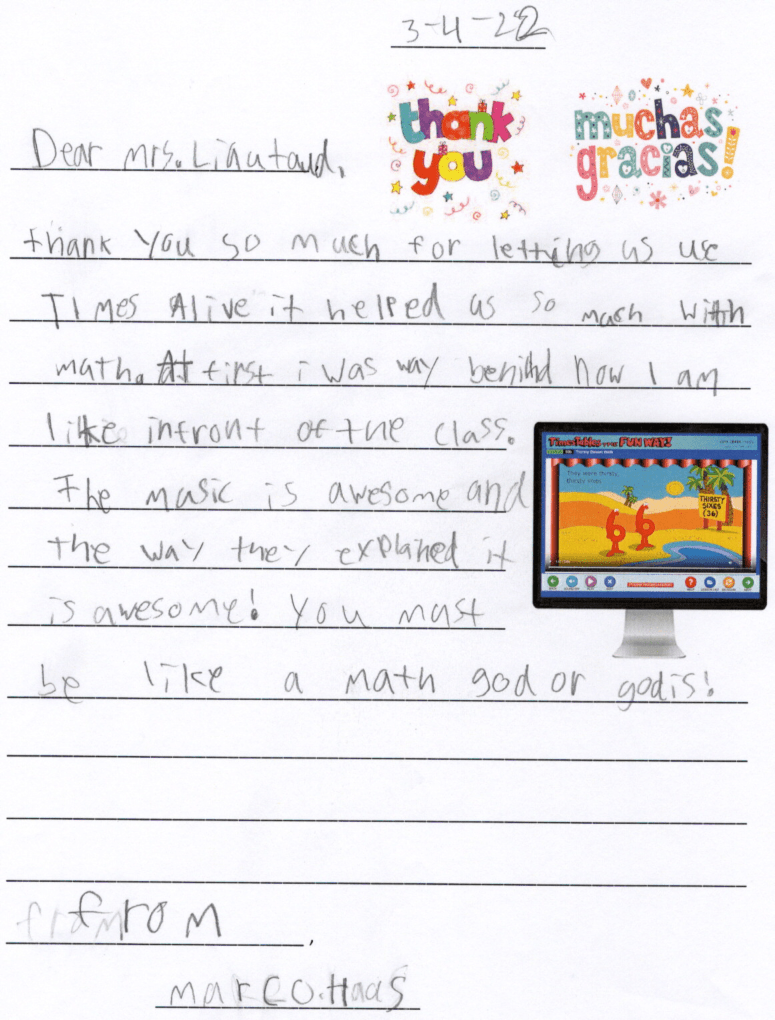 3-4-22
thank you
muchas gracias!
Dear mrs. Liautaud,
thank you so much for letting us use
TIMes Alive it helped us so mach with
math. At first i was way behind now I am
like infront of the class.
The music is awesome and
the way they explaned it
is awesome! you mast
be like a math god or godis!
Times Tables THE FUN WAY!
They were thirsty,
thirsty sixes.
THIRSTY
SIXES
(36)
6 6
from
marco.Haas